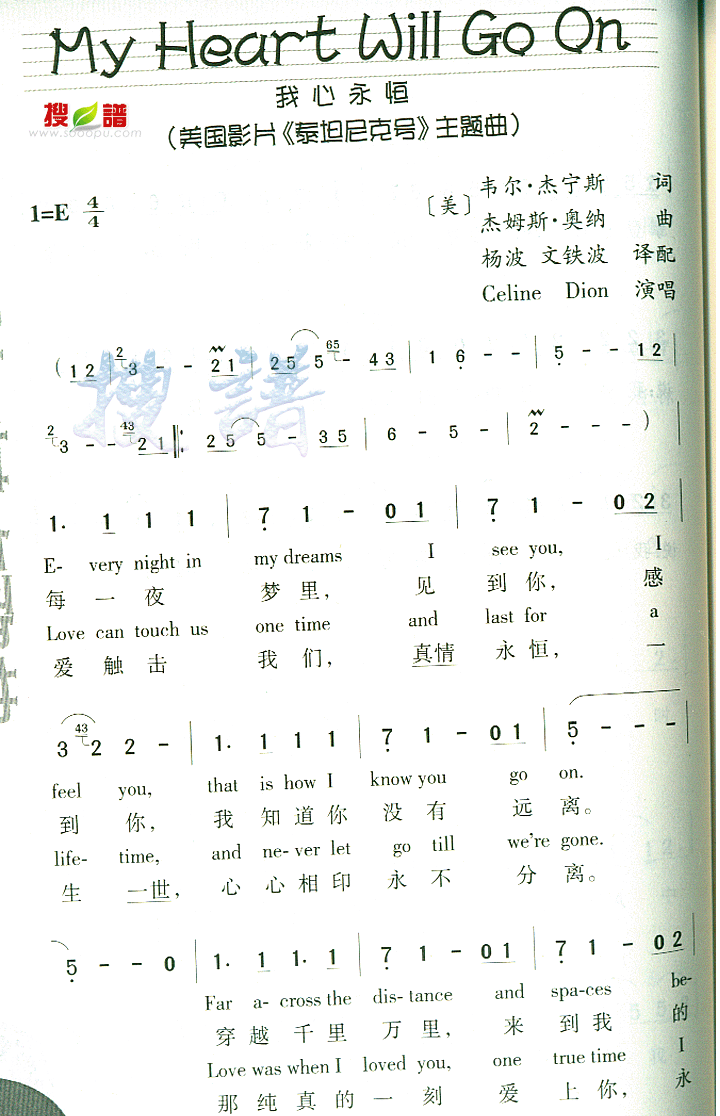 My Heart Will Go On
我心永恒
搜谱
www.sooopu.com
(美国影片《泰坦尼克号》主题曲)
1=E 4/4
〔美〕
韦尔·杰宁斯 词
杰姆斯·奥纳 曲
杨波 文铁波 译配
Celine Dion 演唱
( 1 2 | 2 3 - - 2 1 | 2 5 5 65 - 4 3 | 1 6 - - | 5 - - 1 2 |
2 3 - - 43 2 1 ‖: 2 5 5 - 3 5 | 6 - 5 - | 2 - - - ) |
1. 1 1 1 | 7 1 - 0 1 | 7 1 - 0 2 |
E- very night in my dreams I see you, I
每 一 夜 梦 里, 见 到 你, 感
Love can touch us one time and last for a
爱 触 击 我 们, 真情 永 恒, 一
3 43 2 2 - | 1. 1 1 1 | 7 1 - 0 1 | 5 - - - |
feel you, that is how I know you go on.
到 你, 我 知 道 你 没 有 远 离。
life- time, and ne- ver let go till we're gone.
生 一世, 心 心 相 印 永 不 分 离。
5 - - 0 | 1. 1 1. 1 | 7 1 - 0 1 | 7 1 - 0 2 |
Far a- cross the dis- tance and spa- ces be-
穿 越 千 里 万 里, 来 到 我 的
Love was when I loved you, one true time I
那 纯 真 的 一 刻 爱 上 你, 永